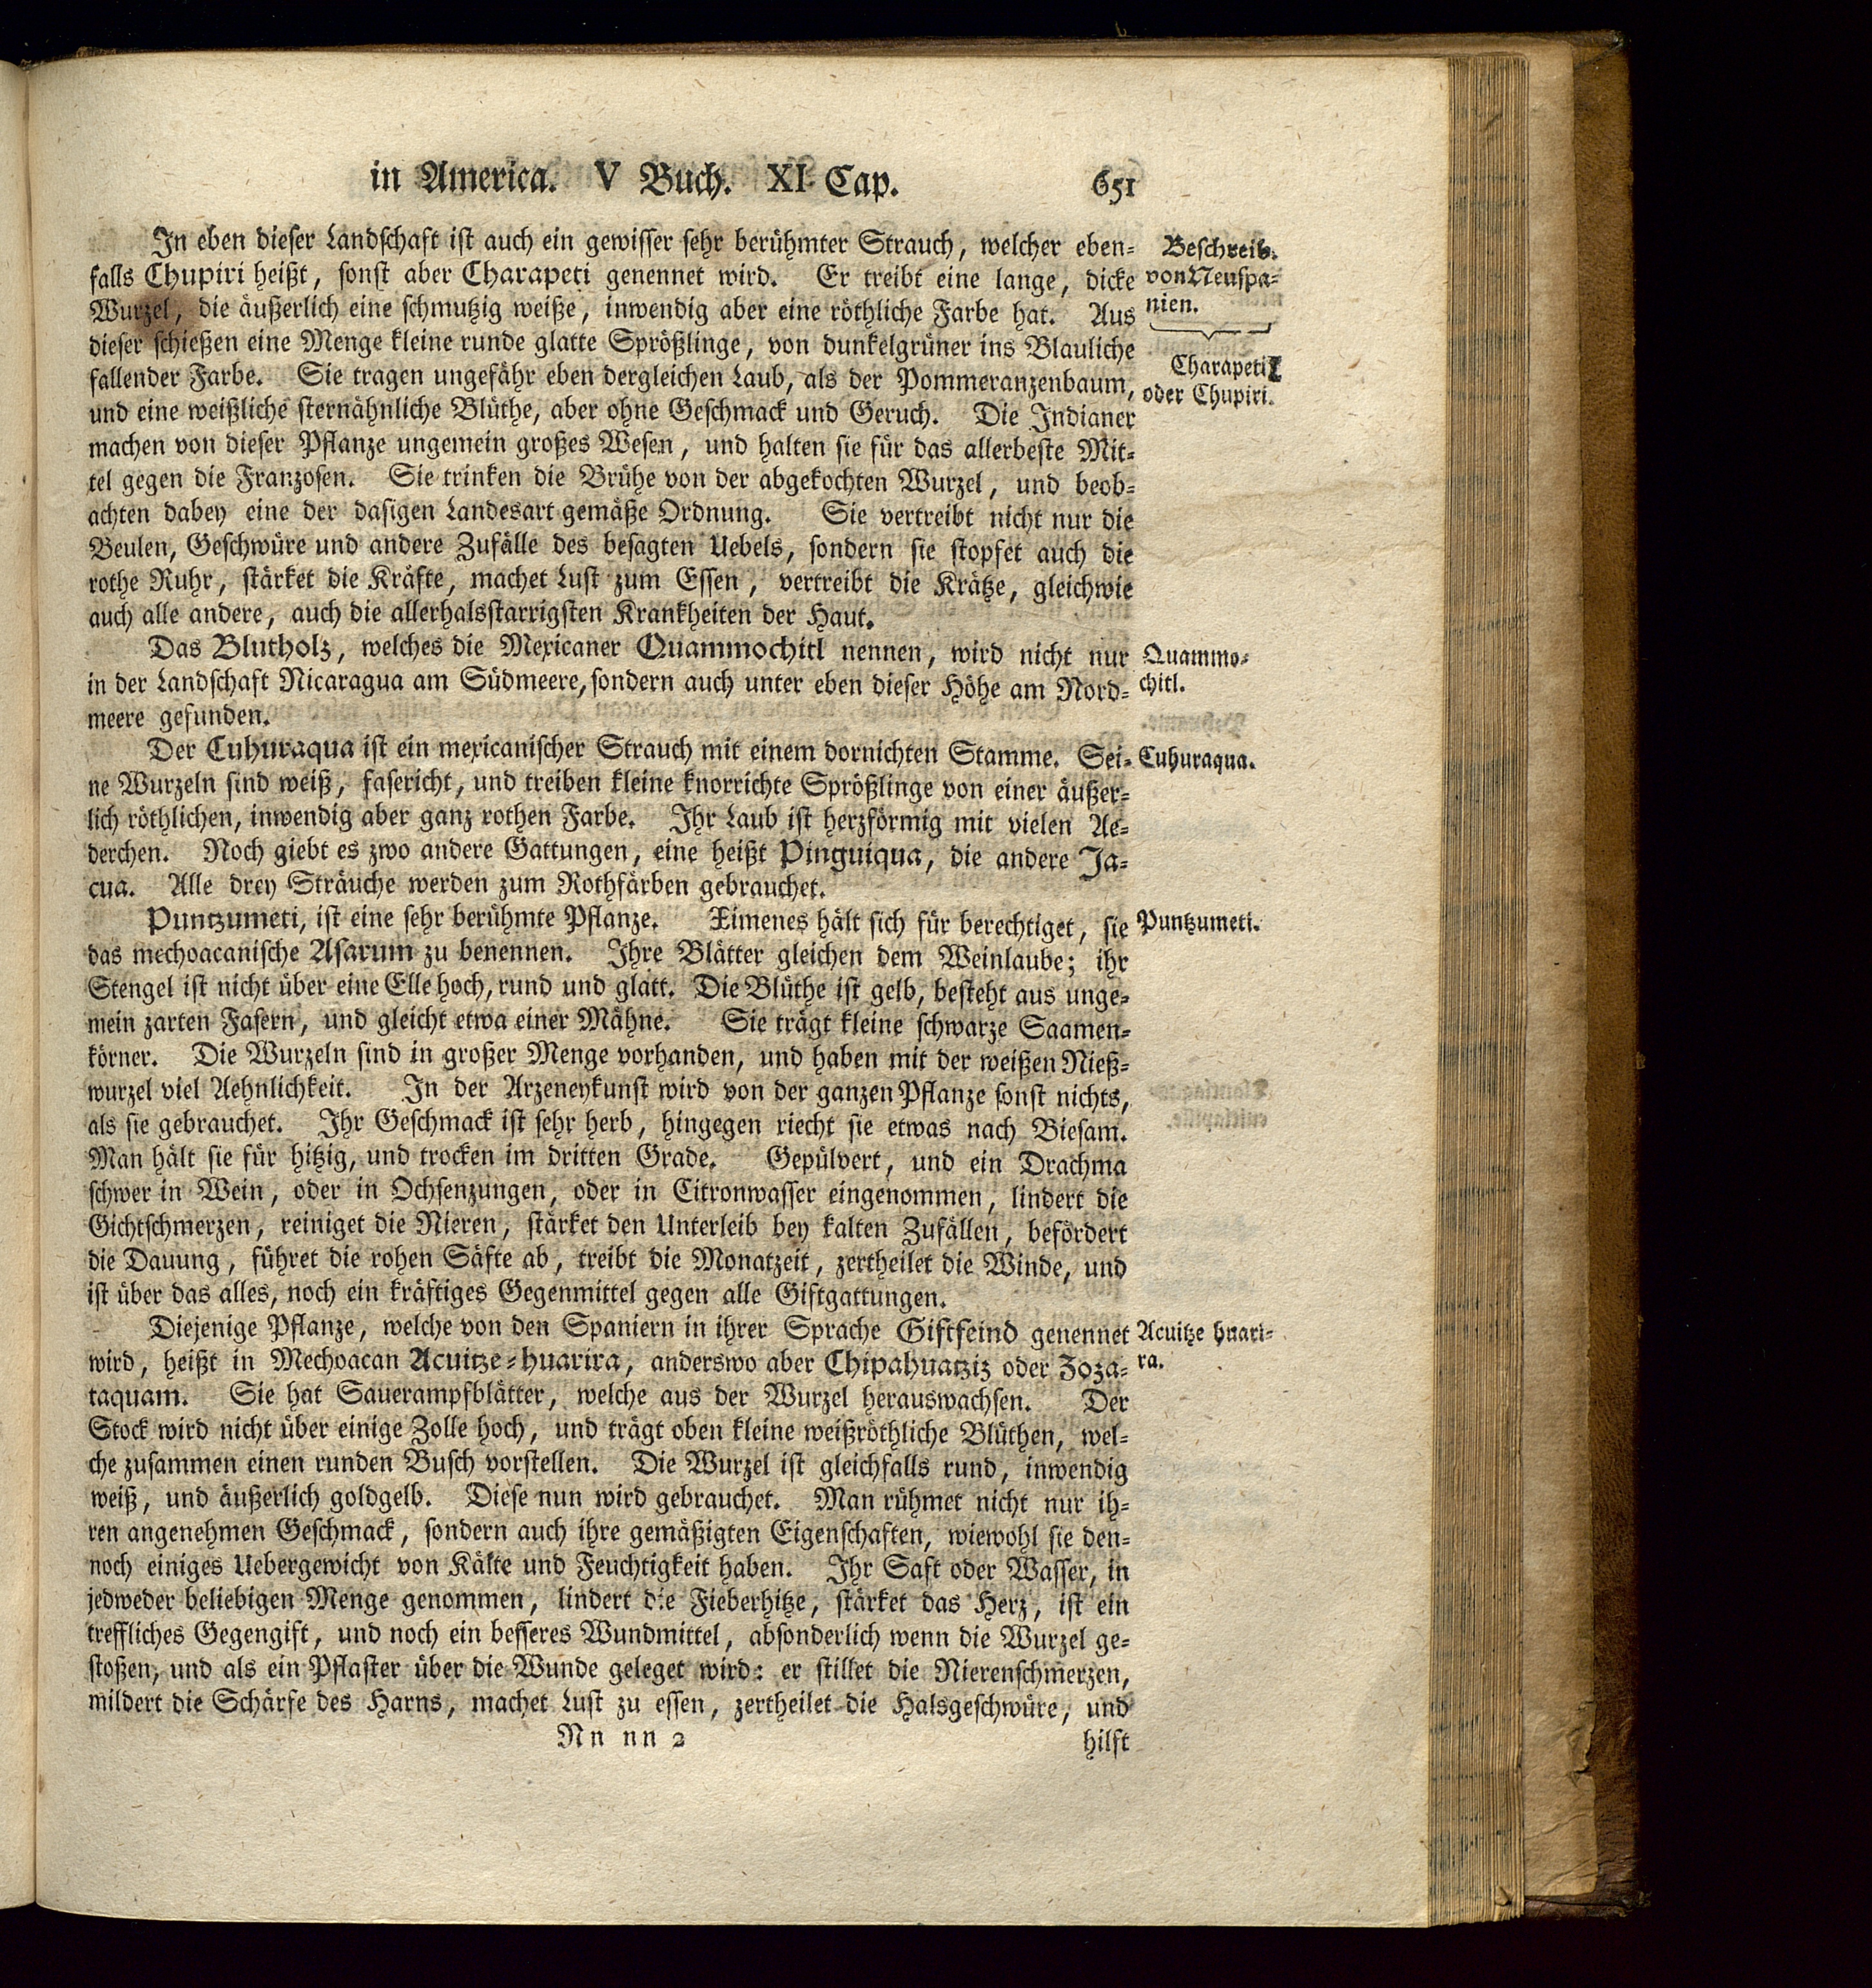 in America. V Buch. XI Cap. 651
In eben dieser Landschaft ist auch ein gewisser sehr berühmter Strauch, welcher eben-
falls Chupiri heißt, sonst aber Charapeti genennet wird. Er treibt eine lange, dicke
Wurzel, die äußerlich eine schmutzig weiße, inwendig aber eine röthliche Farbe hat. Aus
dieser schießen eine Menge kleine runde glatte Sprößlinge, von dunkelgrüner ins Blauliche
fallender Farbe. Sie tragen ungefähr eben dergleichen Laub, als der Pommeranzenbaum,
und eine weißliche sternähnliche Blüthe, aber ohne Geschmack und Geruch. Die Indianer
machen von dieser Pflanze ungemein großes Wesen, und halten sie für das allerbeste Mit-
tel gegen die Franzosen. Sie trinken die Brühe von der abgekochten Wurzel, und beob-
achten dabey eine der dasigen Landesart gemäße Ordnung. Sie vertreibt nicht nur die
Beulen, Geschwüre und andere Zufälle des besagten Uebels, sondern sie stopfet auch die
rothe Ruhr, stärket die Kräfte, machet Lust zum Essen, vertreibt die Krätze, gleichwie
auch alle andere, auch die allerhalsstarrigsten Krankheiten der Haut.
Das Blutholz, welches die Mexicaner Quammochitl nennen, wird nicht nur
in der Landschaft Nicaragua am Südmeere, sondern auch unter eben dieser Höhe am Nord-
meere gefunden.
Der Cuhuraqua ist ein mexicanischer Strauch mit einem dornichten Stamme. Sei-
ne Wurzeln sind weiß, fasericht, und treiben kleine knorrichte Sprößlinge von einer äußer-
lich röthlichen, inwendig aber ganz rothen Farbe. Ihr Laub ist herzförmig mit vielen Ae-
derchen. Noch giebt es zwo andere Gattungen, eine heißt Pinguiqua, die andere Ja-
cua. Alle drey Sträuche werden zum Rothfärben gebrauchet.
Puntzumeti, ist eine sehr berühmte Pflanze. Ximenes hält sich für berechtiget, sie
das mechoacanische Asarum zu benennen. Ihre Blätter gleichen dem Weinlaube; ihr
Stengel ist nicht über eine Elle hoch, rund und glatt. Die Blüthe ist gelb, besteht aus unge-
mein zarten Fasern, und gleicht etwa einer Mähne. Sie trägt kleine schwarze Saamen-
körner. Die Wurzeln sind in großer Menge vorhanden, und haben mit der weißen Nieß-
wurzel viel Aehnlichkeit. In der Arzeneykunst wird von der ganzen Pflanze sonst nichts,
als sie gebrauchet. Ihr Geschmack ist sehr herb, hingegen riecht sie etwas nach Biesam.
Man hält sie für hitzig, und trocken im dritten Grade. Gepülvert, und ein Drachma
schwer in Wein, oder in Ochsenzungen, oder in Citronwasser eingenommen, lindert die
Gichtschmerzen, reiniget die Nieren, stärket den Unterleib bey kalten Zufällen, befördert
die Dauung, führet die rohen Säfte ab, treibt die Monatzeit, zertheilet die Winde, und
ist über das alles, noch ein kräftiges Gegenmittel gegen alle Giftgattungen.
Diejenige Pflanze, welche von den Spaniern in ihrer Sprache Giftfeind genennet
wird, heißt in Mechoacan Acuitze-huarira, anderswo aber Chipahuatziz oder Zoza-
taquam. Sie hat Sauerampfblätter, welche aus der Wurzel herauswachsen. Der
Stock wird nicht über einige Zolle hoch, und trägt oben kleine weißröthliche Blüthen, wel-
che zusammen einen runden Busch vorstellen. Die Wurzel ist gleichfalls rund, inwendig
weiß, und äußerlich goldgelb. Diese nun wird gebrauchet. Man rühmet nicht nur ih-
ren angenehmen Geschmack, sondern auch ihre gemäßigten Eigenschaften, wiewohl sie den-
noch einiges Uebergewicht von Kälte und Feuchtigkeit haben. Ihr Saft oder Wasser, in
jedweder beliebigen Menge genommen, lindert die Fieberhitze, stärket das Herz, ist ein
treffliches Gegengift, und noch ein besseres Wundmittel, absonderlich wenn die Wurzel ge-
stoßen, und als ein Pflaster über die Wunde geleget wird: er stillet die Nierenschmerzen,
mildert die Schärfe des Harns, machet Lust zu essen, zertheilet die Halsgeschwüre, und
Nn nn 2 hilft
Beschreib.
von Neuspa-
nien.
Charapeti
oder Chupiri.
Quammo-
chitl.
Cuhuraqua.
Puntzumeti.
Acuitze huari-
ra.